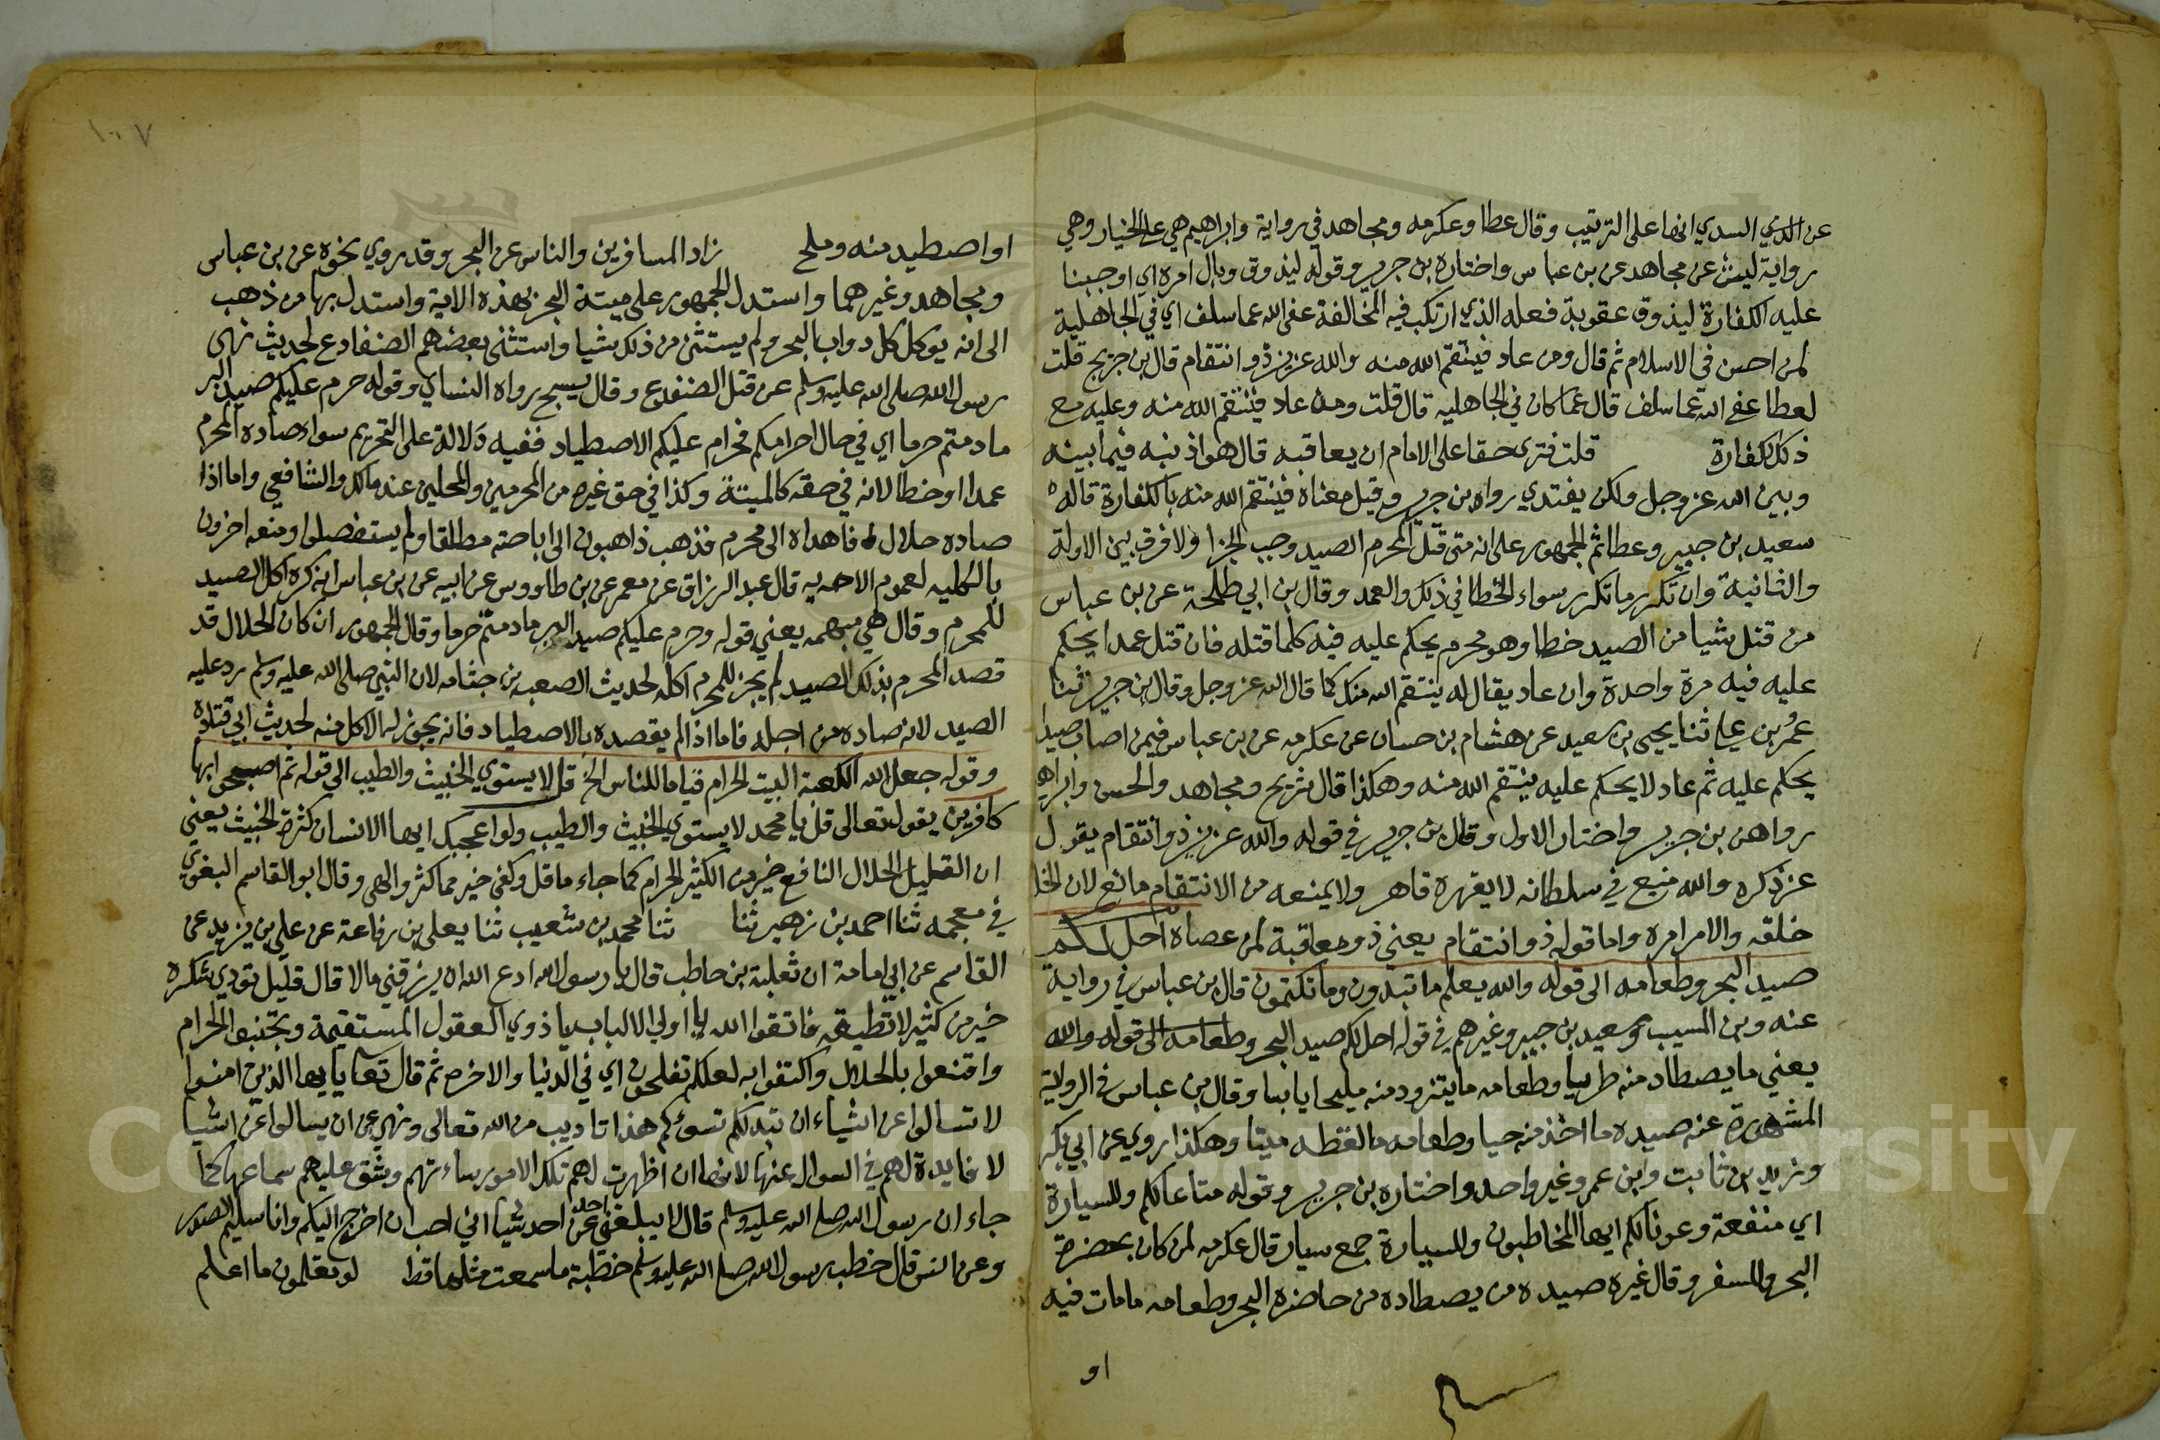 عن الذي السدي انها على الترتيب وقال عطا وعكرمه ومجاهد في رواية وابراهيم هي على الخيار وهي
رواية ليث عن مجاهد عن بن عباس واختاره بن جرير وقوله ليذوق وبال امره اي اوجبنا
عليه الكفارة ليذوق عقوبة فعله الذي ارتكب فيه المخالفة عفى الله عما سلف اي في الجاهلية
لمن احسن في الاسلام ثم قال ومن عاد فينتقم الله منه والله عزيز ذو انتقام قال بن جريج قلت
لعطا عفى الله عما سلف قال عما كان في الجاهليه قال قلت ومن عاد فينتقم الله منه وعليه مع
ذلك الكفارة قلت فترى حقا على الامام ان يعاقبه قال هو اذنبه فيما بينه
وبين الله عز وجل ولكن يفتدي رواه بن جرير وقيل معناه فينتقم الله منه بالكفارة قاله
سعيد بن جبير وعطا ثم الجمهور على انه متى قتل المحرم الصيد وجب الجزا ولا فرق بين الاولة
والثانية وان تكرر ما تكرر سواء الخطا في ذلك والعمد وقال بن ابي طلحة عن بن عباس
من قتل شيا من الصيد خطا وهو محرم يحكم عليه فيه كلما قتله فان قتل عمدا يحكم
عليه فيه مرة واحدة وان عاد يقال له ينتقم الله منك كما قال الله عز وجل وقال بن جرير ثنا
عمر بن علي ثنا يحيى بن سعيد عن هشام بن حسان عن عكرمه عن بن عباس فيمن اصاب صيدا
يحكم عليه ثم عاد لا يحكم عليه ينتقم الله منه وهكذا قال شريح ومجاهد والحسن وابراهيم
رواهن بن جرير واختار الاول وقال بن جرير في قوله والله عزيز ذو انتقام يقول
عز ذكره والله منيع في سلطانه لا يقهره قاهر ولا يمنعه من الانتقام مانع لان الخلق
خلقه والامر امره واما قوله ذو انتقام يعني ذو معاقبة لمن عصاه احل لكم
صيد البحر وطعامه الى قوله والله يعلم ما تبدون وما تكتمون قال بن عباس في رواية
عنه وبن المسيب وسعيد بن جبير وغيرهم في قوله احل لكم صيد البحر وطعامه الى قوله والله
يعني ما يصطاد منه طريا وطعامه ما يتزود منه مليحا يابسا وقال بن عباس في الرواية
المشهورة عنه صيده ما اخذ منه حيا وطعامه ما لفظه ميتا وهكذا روي عن ابي بكر
وزيد بن ثابت وابن عمر وغير واحد واختاره بن جرير وقوله متاعا لكم وللسيارة
اي منفعة وعونا لكم ايها المخاطبون وللسيارة جمع سيار قال عكرمه لمن كان بحضرة
البحر والسفر وقال غيره صيده من يصطاده من حاضرة البحر وطعامه ما مات فيه
او
١٠٧
او اصطيد منه وملح زاد المسافرين والناس عن البحر وقد روي نحوه عن بن عباس
ومجاهد وغيرهما واستدل الجمهور على ميتة البحر بهذه الاية واستدل بها من ذهب
الى انه يوكل كل دواب البحر ولم يستثنى من ذلك شيا واستثنى بعضهم الضفادع لحديث نهى
رسول الله صلى الله عليه وسلم عن قتل الضفدع وقال يسبح رواه النساي وقوله حرم عليكم صيد البر
ما دمتم حرما اي في حال احرامكم فحرام عليكم الاصطياد ففيه دلالة على التحريم سواء صاده المحرم
عمدا او خطا لانه في حقه كالميتة وكذا في حق غيره من المحرمين والمحلين عند مالك والشافعي واما اذا
صاده حلال فاهداه الى محرم فذهب ذاهبون الى اباحته مطلقا ولم يستفصلوا ومنعه اخرون
بالكليه لعموم الايه قال عبد الرزاق عن معمر عن بن طاووس عن ابيه عن بن عباس انه كره اكل الصيد
للمحرم وقال هي مبهمه يعني قوله وحرم عليكم صيد البر ما دمتم حرما وقال الجمهور ان كان الحلال قد
قصد المحرم بذلك الصيد لم يجز للمحرم اكله لحديث الصعب بن جثامه لان النبي صلى الله عليه وسلم رد عليه
الصيد لانه صاده من اجله فاما اذا لم يقصده بالاصطياد فانه يجوز له الاكل منه لحديث ابي قتادة
وقوله جعل الله الكعبة البيت الحرام قياما للناس الخ قل لا يستوي الخبيث والطيب الى قوله ثم اصبحوا بها
كافرين يقول تعالى قل يا محمد لا يستوي الخبيث والطيب ولو اعجبك ايها الانسان كثرة الخبيث يعني
ان القليل الحلال النافع خير من الكثير الحرام كما جاء ما قل وكفى خير مما كثر والهى وقال ابو القاسم البغوي
في معجمه ثنا احمد بن زهير ثنا ثنا محمد بن شعيب ثنا يعلى بن رفاعة عن علي بن يزيد عن
القاسم عن ابي امامة ان ثعلبة بن حاطب قال يا رسول الله ادع الله ان يرزقني مالا قال قليل تودي شكره
خير من كثير لا تطيقه فاتقوا الله يا اولي الالباب يا ذوي العقول المستقيمة وتجتنبوا الحرام
واقنعوا بالحلال واكتفوا به لعلكم تفلحون اي في الدنيا والاخره ثم قال تعا يايها الذين امنوا
لا تسالوا عن اشياء ان تبد لكم تسؤكم هذا تاديب من الله تعالى ونهي عن ان يسالوا عن اشيا
لا فايدة لهم في السوال عنها لانها ان اظهرت لهم تلك الامور ساءتهم وشق عليهم سماعها كما
جاء ان رسول الله صلى الله عليه وسلم قال لا يبلغني احد عن احد شيا اني احب ان اخرج اليكم وانا سليم الصدر
وعن انس قال خطب رسول الله صلى الله عليه وسلم خطبة ما سمعت مثلها قط لو تعلمون ما اعلم